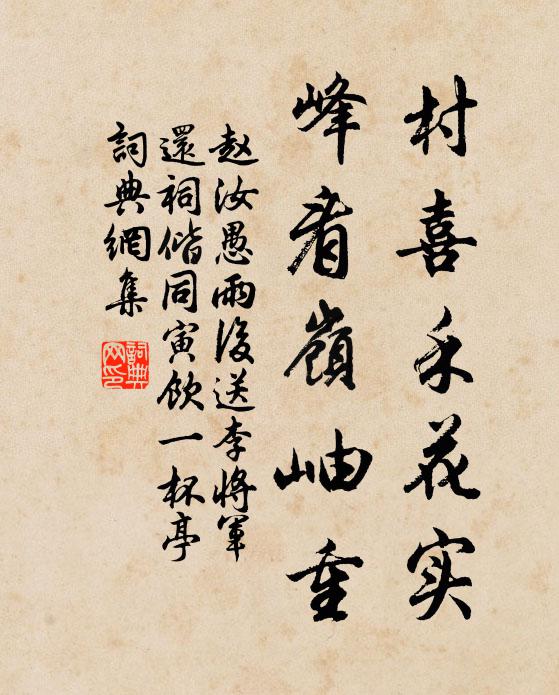 村喜禾花实
峰看嶺岫重
赵汝愚雨後送李将軍
還祠偕同寅飲一杯亭
詞典網集
詞典
网印